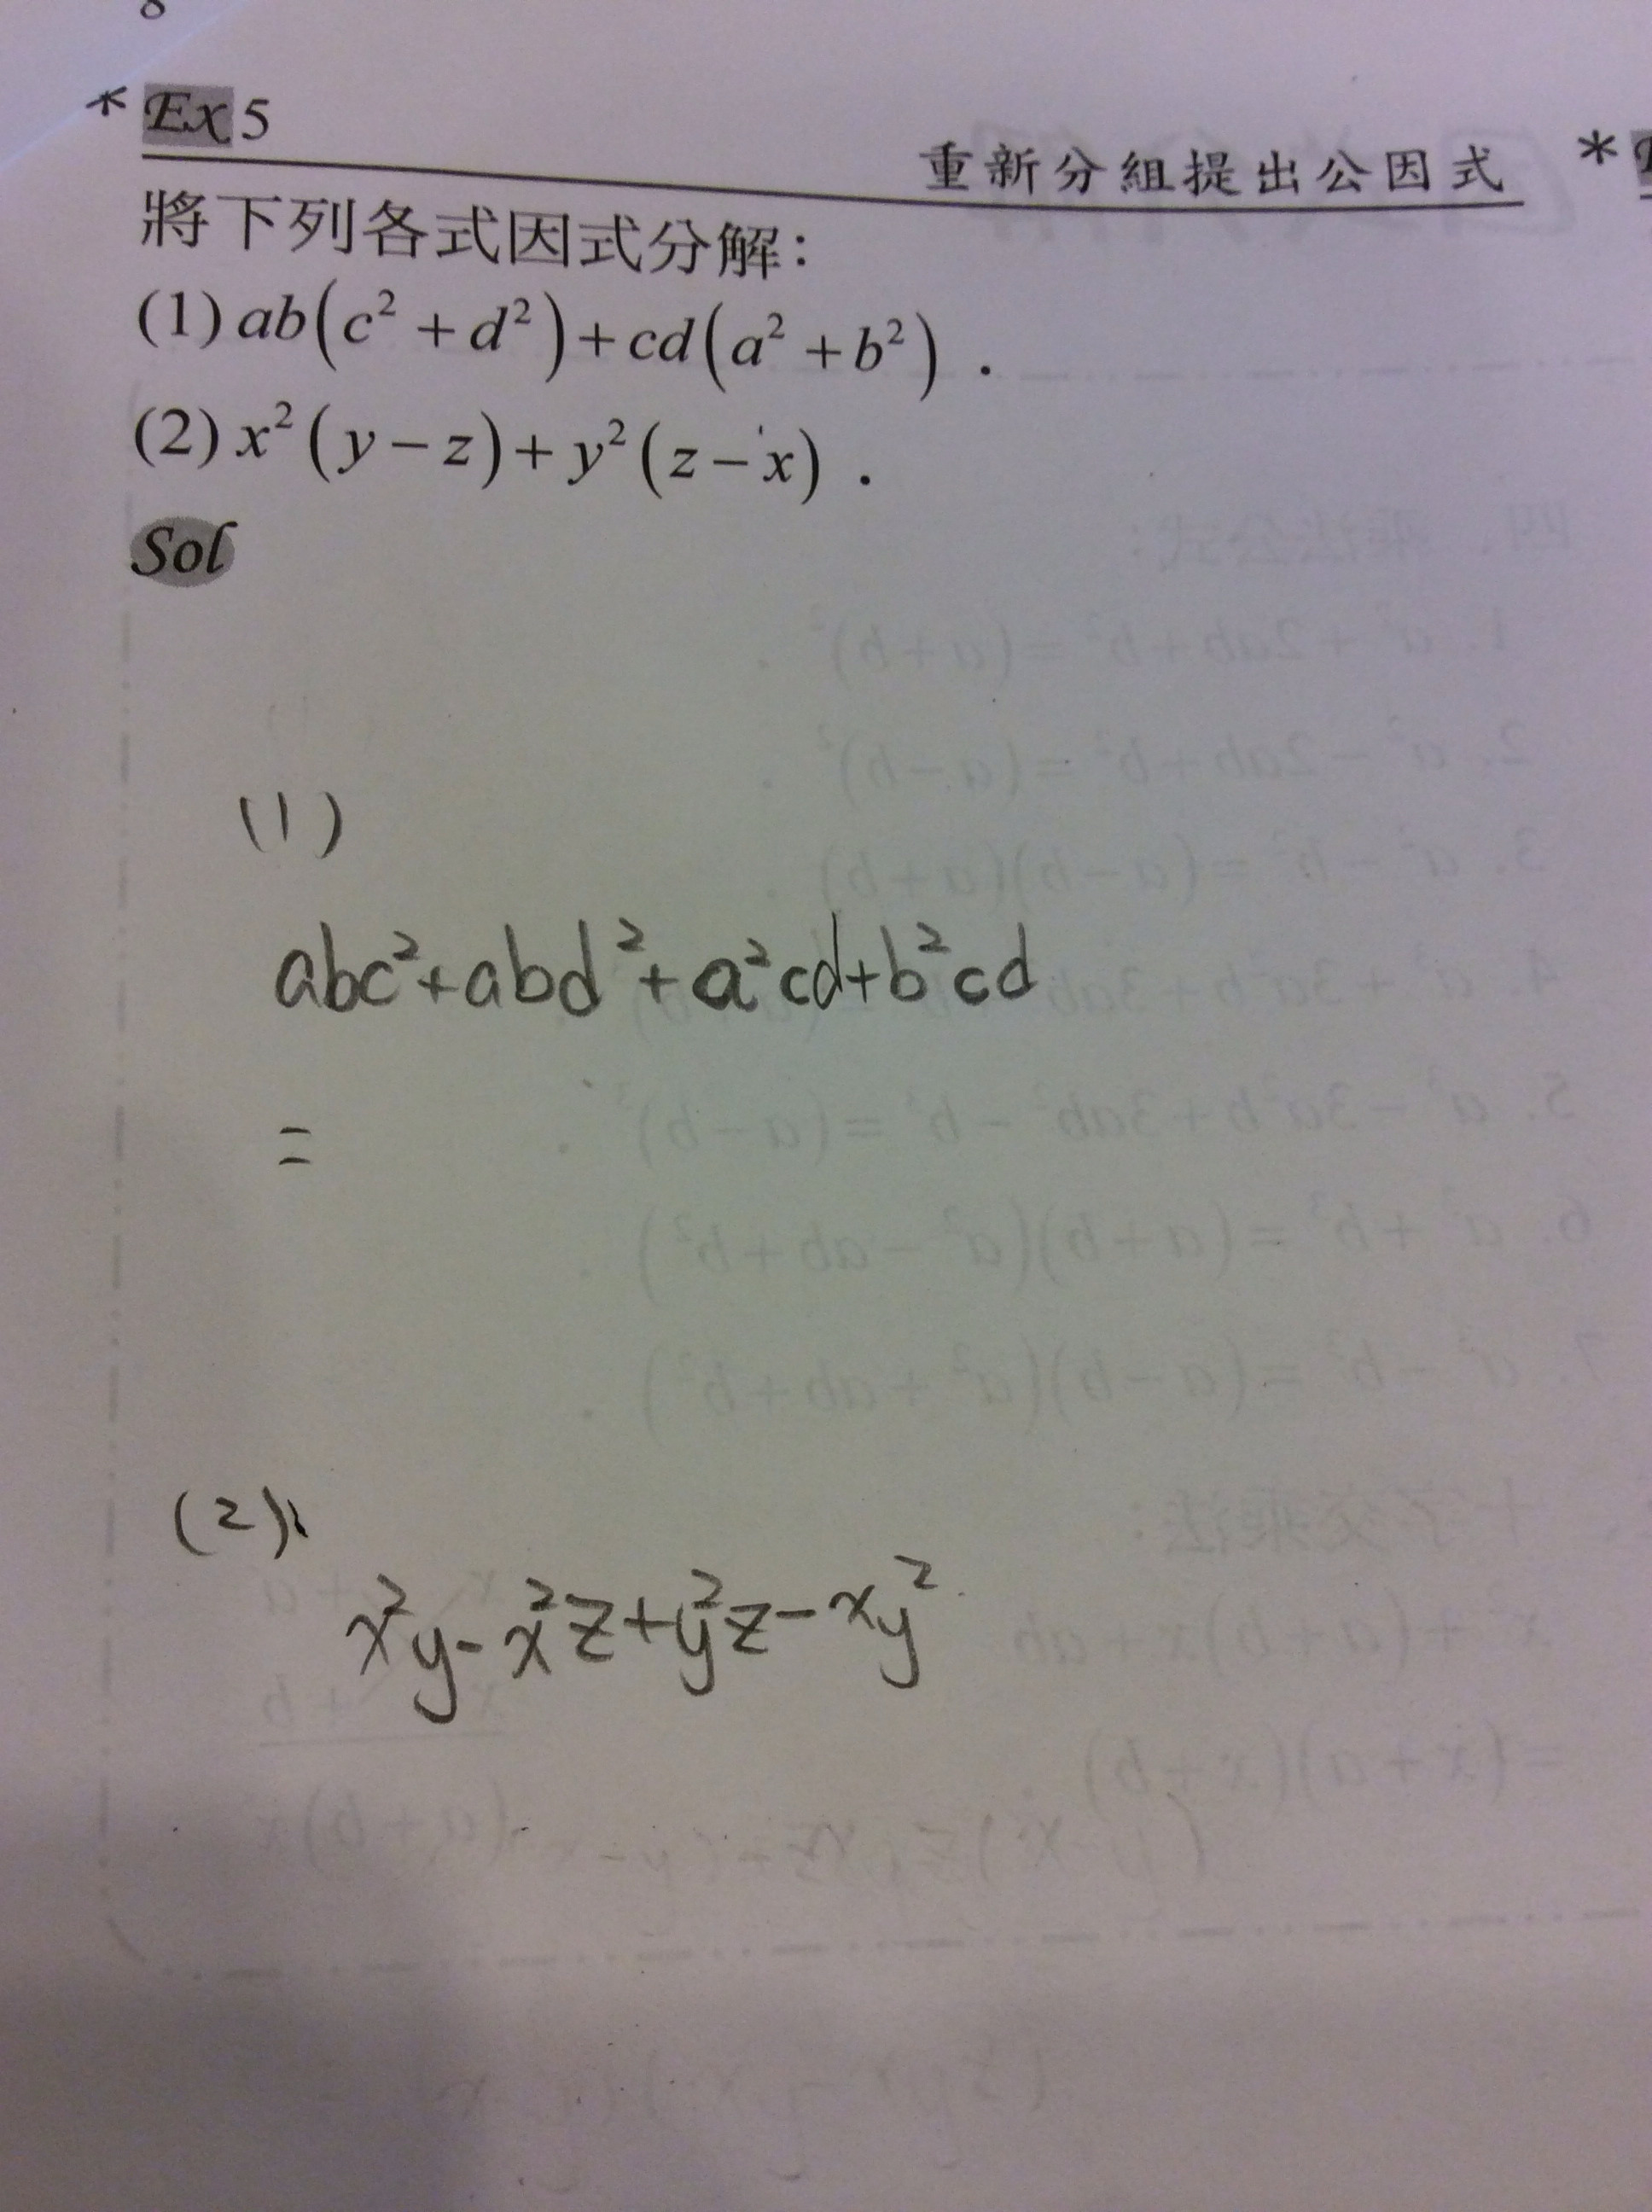 8
* Ex 5
重新分組提出公因式 *
將下列各式因式分解：
(1) ab(c² + d²) + cd(a² + b²) .
(2) x²(y − z) + y²(z − x) .
Sol
(1)
abc²+abd²+a²cd+b²cd
=
(2)
x²y-x²z+y²z-xy²